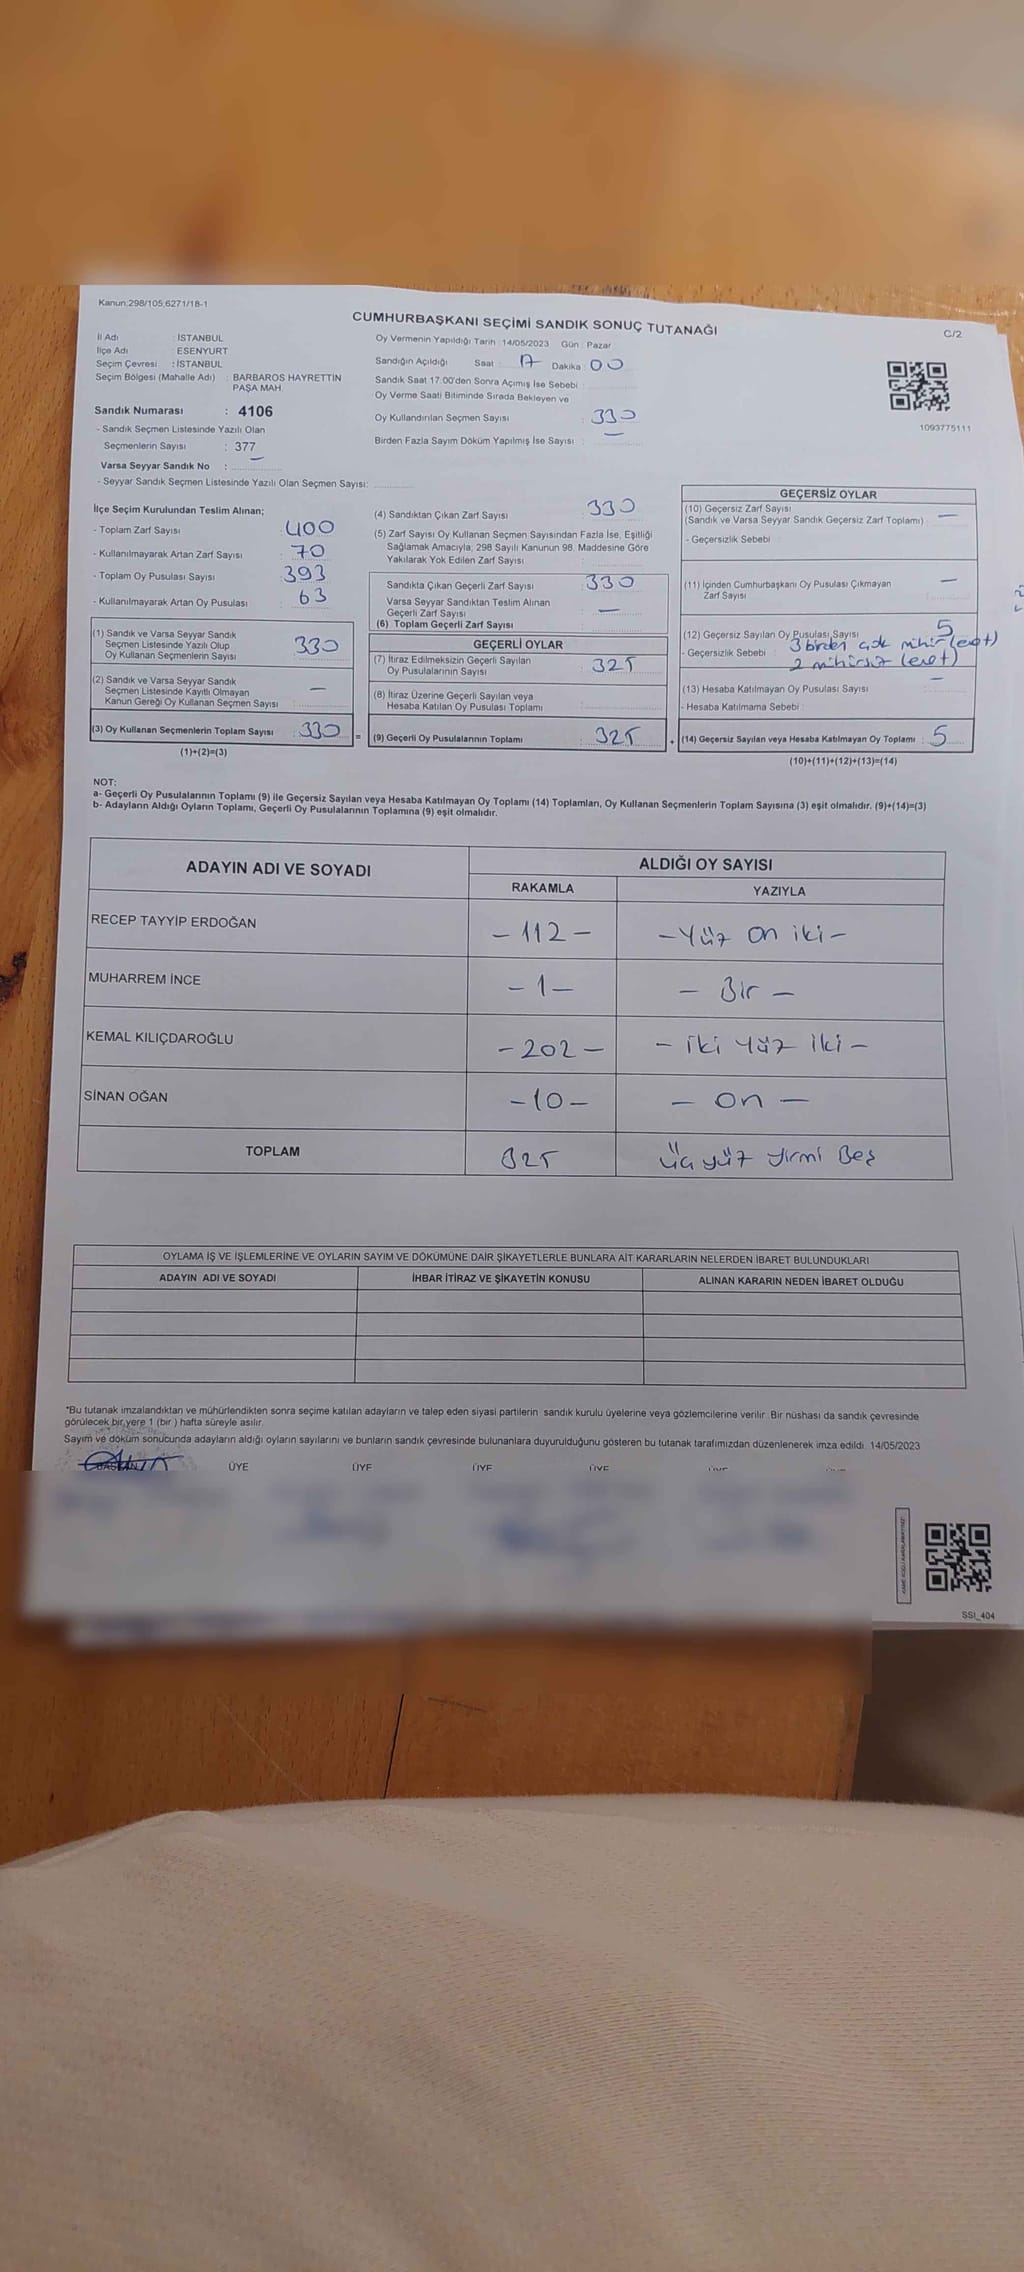 Kanun;298/105,6271/18-1
CUMHURBAŞKANI SEÇİMİ SANDIK SONUÇ TUTANAĞI
C/2
İl Adı : İSTANBUL
İlçe Adı : ESENYURT
Seçim Çevresi : İSTANBUL
Seçim Bölgesi (Mahalle Adı) : BARBAROS HAYRETTİN
PAŞA MAH.
Sandık Numarası : 4106
- Sandık Seçmen Listesinde Yazılı Olan
Seçmenlerin Sayısı : 377
Varsa Seyyar Sandık No : —
- Seyyar Sandık Seçmen Listesinde Yazılı Olan Seçmen Sayısı:
Oy Vermenin Yapıldığı Tarih :14/05/2023 Gün : Pazar
Sandığın Açıldığı Saat : 17 Dakika : 00
Sandık Saat 17:00'den Sonra Açımış İse Sebebi :
Oy Verme Saati Bitiminde Sırada Bekleyen ve
Oy Kullandırılan Seçmen Sayısı : 330
Birden Fazla Sayım Döküm Yapılmış İse Sayısı : —
1093775111
İlçe Seçim Kurulundan Teslim Alınan;
- Toplam Zarf Sayısı : 400
- Kullanılmayarak Artan Zarf Sayısı : 70
- Toplam Oy Pusulası Sayısı : 393
- Kullanılmayarak Artan Oy Pusulası : 63
(1) Sandık ve Varsa Seyyar Sandık
Seçmen Listesinde Yazılı Olup
Oy Kullanan Seçmenlerin Sayısı : 330
(2) Sandık ve Varsa Seyyar Sandık
Seçmen Listesinde Kayıtlı Olmayan
Kanun Gereği Oy Kullanan Seçmen Sayısı : —
(3) Oy Kullanan Seçmenlerin Toplam Sayısı : 330 =
(1)+(2)=(3)
(4) Sandıktan Çıkan Zarf Sayısı : 330
(5) Zarf Sayısı Oy Kullanan Seçmen Sayısından Fazla İse, Eşitliği
Sağlamak Amacıyla; 298 Sayılı Kanunun 98. Maddesine Göre
Yakılarak Yok Edilen Zarf Sayısı :
Sandıkta Çıkan Geçerli Zarf Sayısı : 330
Varsa Seyyar Sandıktan Teslim Alınan
Geçerli Zarf Sayısı : —
(6) Toplam Geçerli Zarf Sayısı
GEÇERLİ OYLAR
(7) İtiraz Edilmeksizin Geçerli Sayılan
Oy Pusulalarının Sayısı : 325
(8) İtiraz Üzerine Geçerli Sayılan veya
Hesaba Katılan Oy Pusulası Toplamı :
(9) Geçerli Oy Pusulalarının Toplamı : 325 +
GEÇERSİZ OYLAR
(10) Geçersiz Zarf Sayısı
(Sandık ve Varsa Seyyar Sandık Geçersiz Zarf Toplamı) : —
- Geçersizlik Sebebi :
(11) İçinden Cumhurbaşkanı Oy Pusulası Çıkmayan
Zarf Sayısı : —
(12) Geçersiz Sayılan Oy Pusulası Sayısı : 5
- Geçersizlik Sebebi : 3 birden çok mühür (evet)
2 mühürsüz (evet)
(13) Hesaba Katılmayan Oy Pusulası Sayısı : —
- Hesaba Katılmama Sebebi :
(14) Geçersiz Sayılan veya Hesaba Katılmayan Oy Toplamı : 5
(10)+(11)+(12)+(13)=(14)
NOT:
a- Geçerli Oy Pusulalarının Toplamı (9) ile Geçersiz Sayılan veya Hesaba Katılmayan Oy Toplamı (14) Toplamları, Oy Kullanan Seçmenlerin Toplam Sayısına (3) eşit olmalıdır. (9)+(14)=(3)
b- Adayların Aldığı Oyların Toplamı, Geçerli Oy Pusulalarının Toplamına (9) eşit olmalıdır.
ADAYIN ADI VE SOYADI ALDIĞI OY SAYISI
RAKAMLA YAZIYLA
RECEP TAYYİP ERDOĞAN - 112 - - Yüz on iki -
MUHARREM İNCE - 1 - - Bir -
KEMAL KILIÇDAROĞLU - 202 - - İki yüz iki -
SİNAN OĞAN - 10 - - On -
TOPLAM 325 Üç yüz yirmi Beş
OYLAMA İŞ VE İŞLEMLERİNE VE OYLARIN SAYIM VE DÖKÜMÜNE DAİR ŞİKAYETLERLE BUNLARA AİT KARARLARIN NELERDEN İBARET BULUNDUKLARI
ADAYIN ADI VE SOYADI İHBAR İTİRAZ VE ŞİKAYETİN KONUSU ALINAN KARARIN NEDEN İBARET OLDUĞU
*Bu tutanak imzalandıktan ve mühürlendikten sonra seçime katılan adayların ve talep eden siyasi partilerin sandık kurulu üyelerine veya gözlemcilerine verilir. Bir nüshası da sandık çevresinde
görülecek bir yere 1 (bir ) hafta süreyle asılır.
Sayım ve döküm sonucunda adayların aldığı oyların sayılarını ve bunların sandık çevresinde bulunanlara duyurulduğunu gösteren bu tutanak tarafımızdan düzenlenerek imza edildi. 14/05/2023
BAŞKAN ÜYE ÜYE ÜYE ÜYE
SSI_404